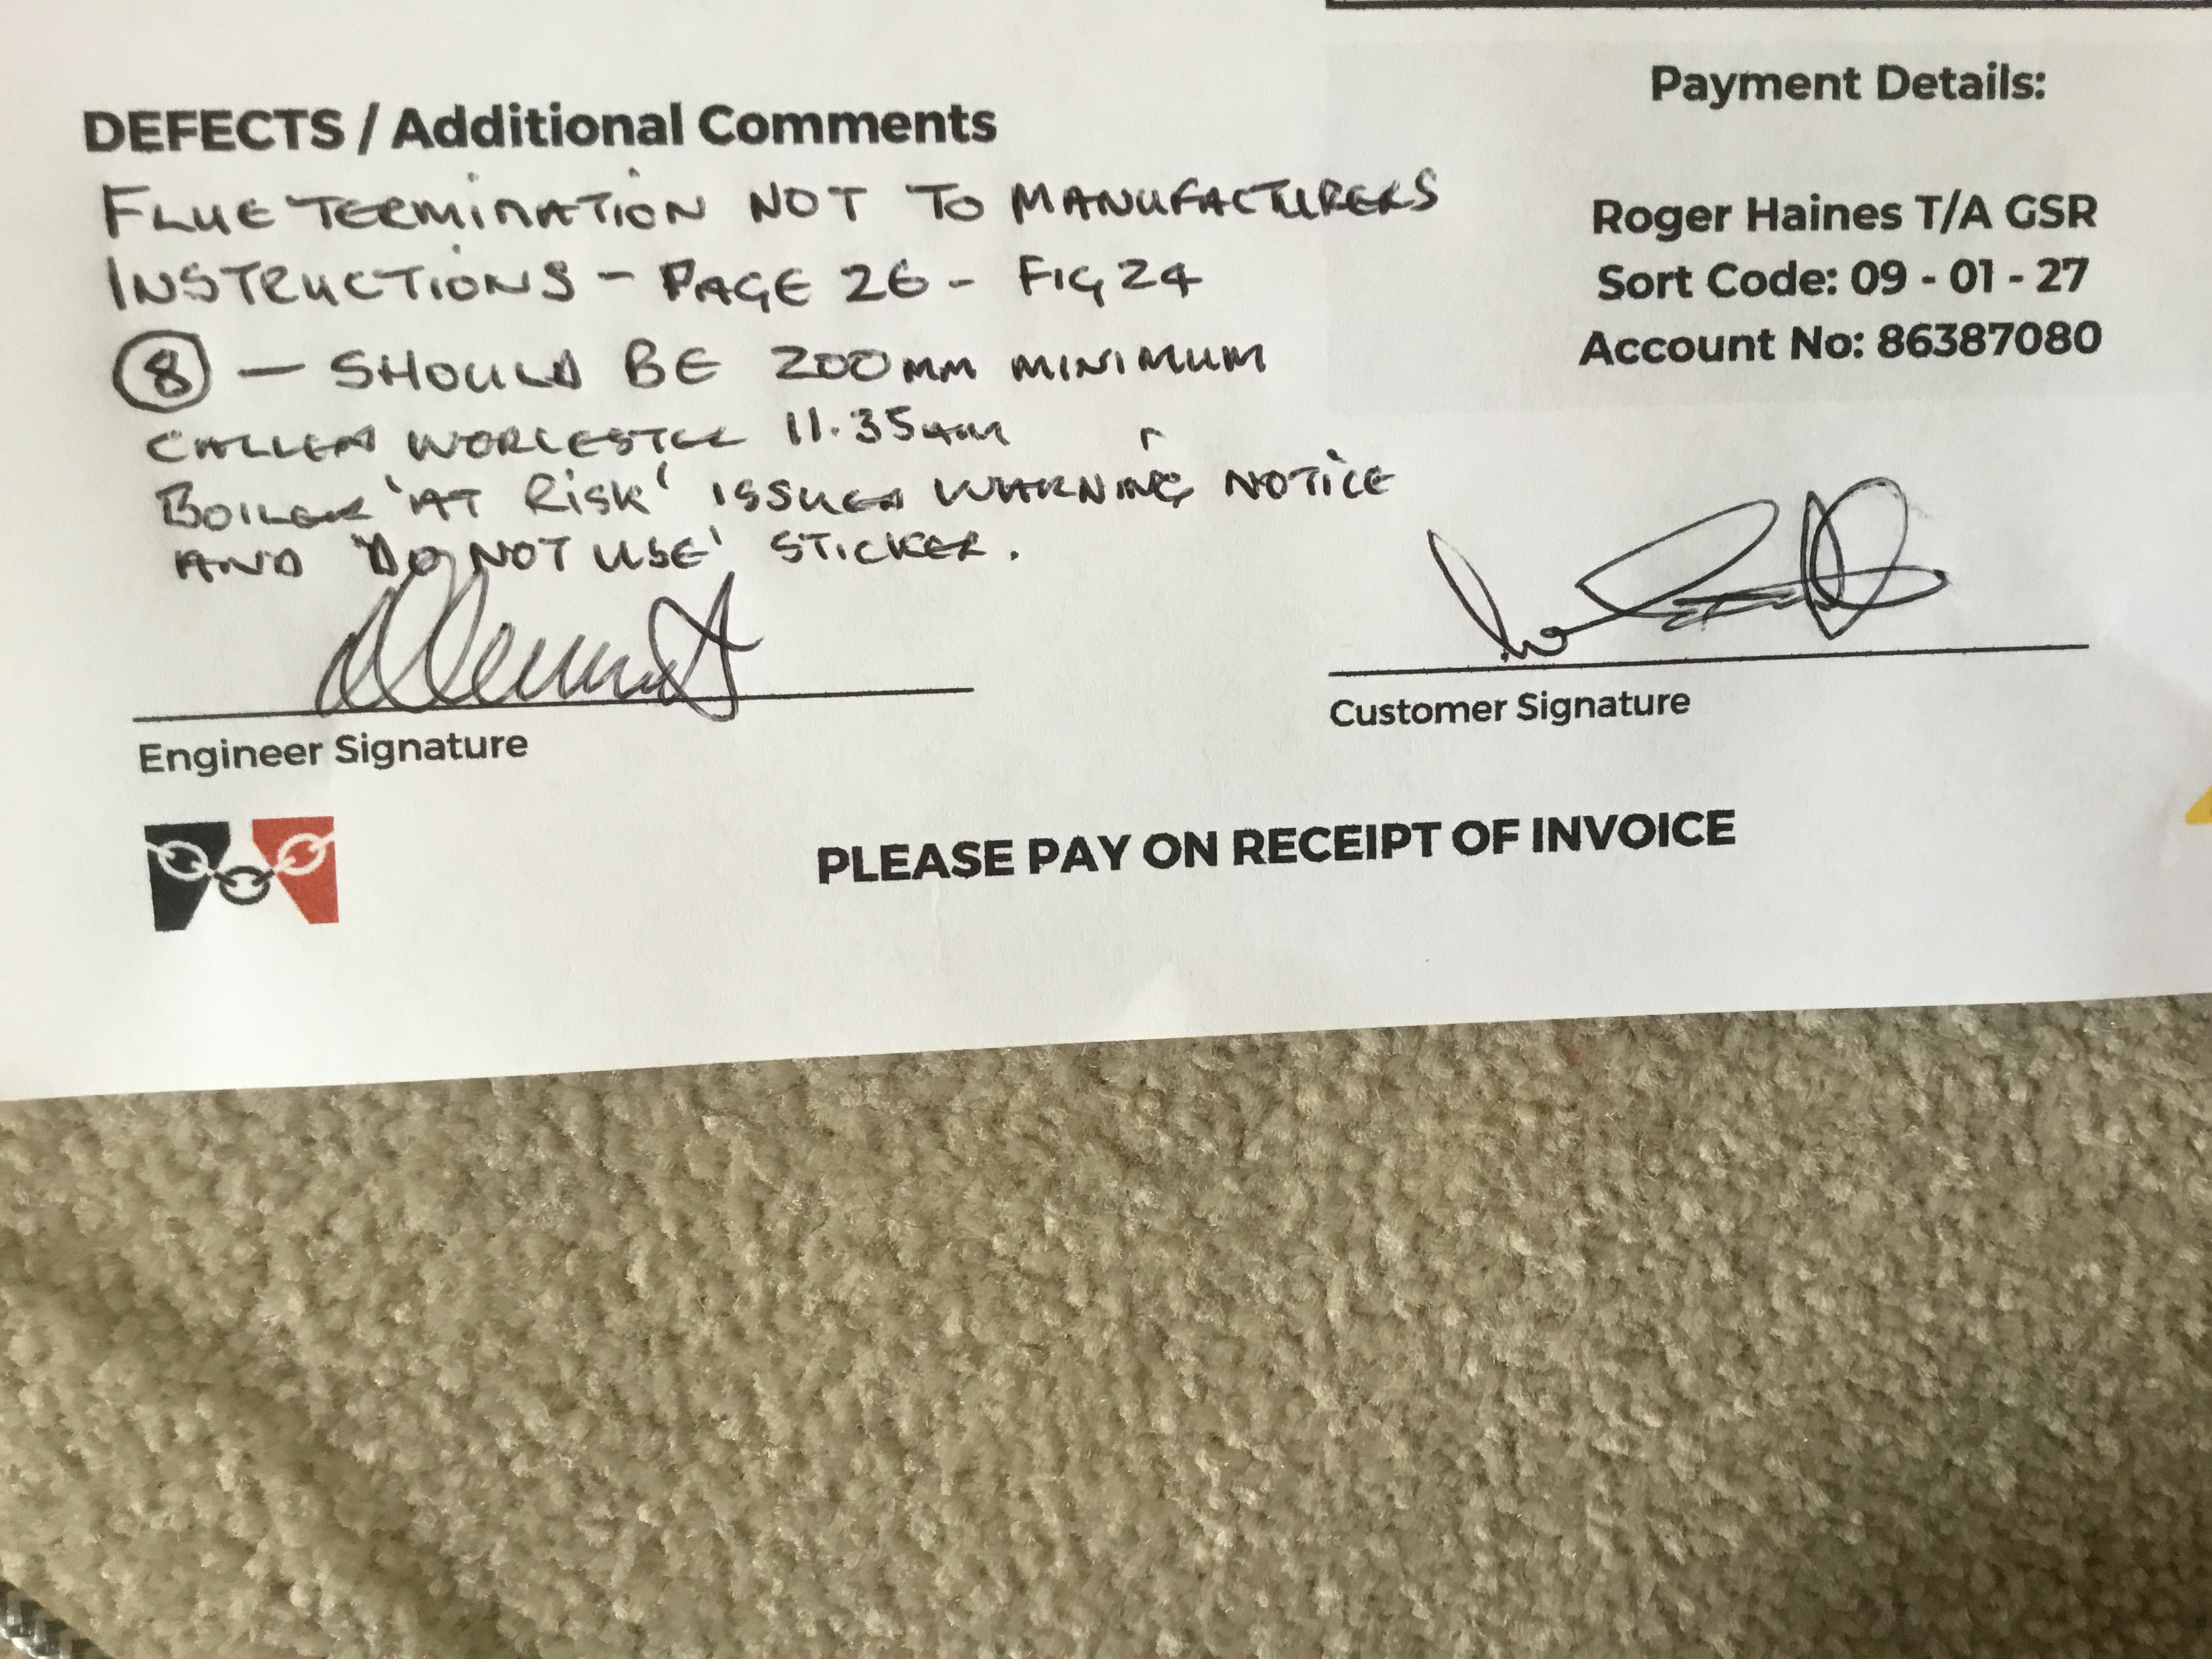 DEFECTS / Additional Comments
FLUE TERMINATION NOT TO MANUFACTURERS
INSTRUCTIONS - PAGE 26 - FIG 24
8 - SHOULD BE 200MM MINIMUM
CALLED WORCESTER 11.35am
BOILER 'AT RISK' ISSUED WARNING NOTICE
AND 'DO NOT USE' STICKER.
Engineer Signature
Payment Details:
Roger Haines T/A GSR
Sort Code: 09 - 01 - 27
Account No: 86387080
Customer Signature
PLEASE PAY ON RECEIPT OF INVOICE